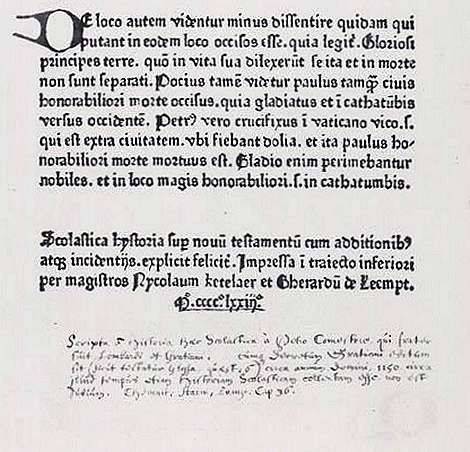 DE loco autem videntur minus dissentire quidam qui
putant in eodem loco occisos esse. quia legit̄. Gloriosi
principes terre. quō in vita sua dilexerūt se ita et in morte
non sunt separati. Pocius tamē videtur paulus tamꝙ̄ ciuis
honorabiliori morte occisus. quia gladiatus et ī cathatūbis
versus occidentē. Petrꝰ vero crucifixus ī vaticano vico. s.
qui est extra ciuitatem. vbi fiebant dolia. et ita paulus ho-
norabiliori morte mortuus est. Gladio enim perimebantur
nobiles. et in loco magis honorabiliori. s. in cathatumbis.
Scolastica hystoria suꝑ nouū testamentū cum additionibꝰ
atqꝫ incidentijs. explicit felicit̄. Impressa ī traiecto inferiori
per magistros Nycolaum ketelaer et Gherardū de Leempt.
M°. cccc°. lxxiij°.
Scripta Historia haec Scolastica à Petro Comestore, qui frater
fuit Lombardi et Gratiani.
circa annum Domini, 1150. circa
illud tempus etiam Historiam Scolasticam collectam esse non est
Cap 36.